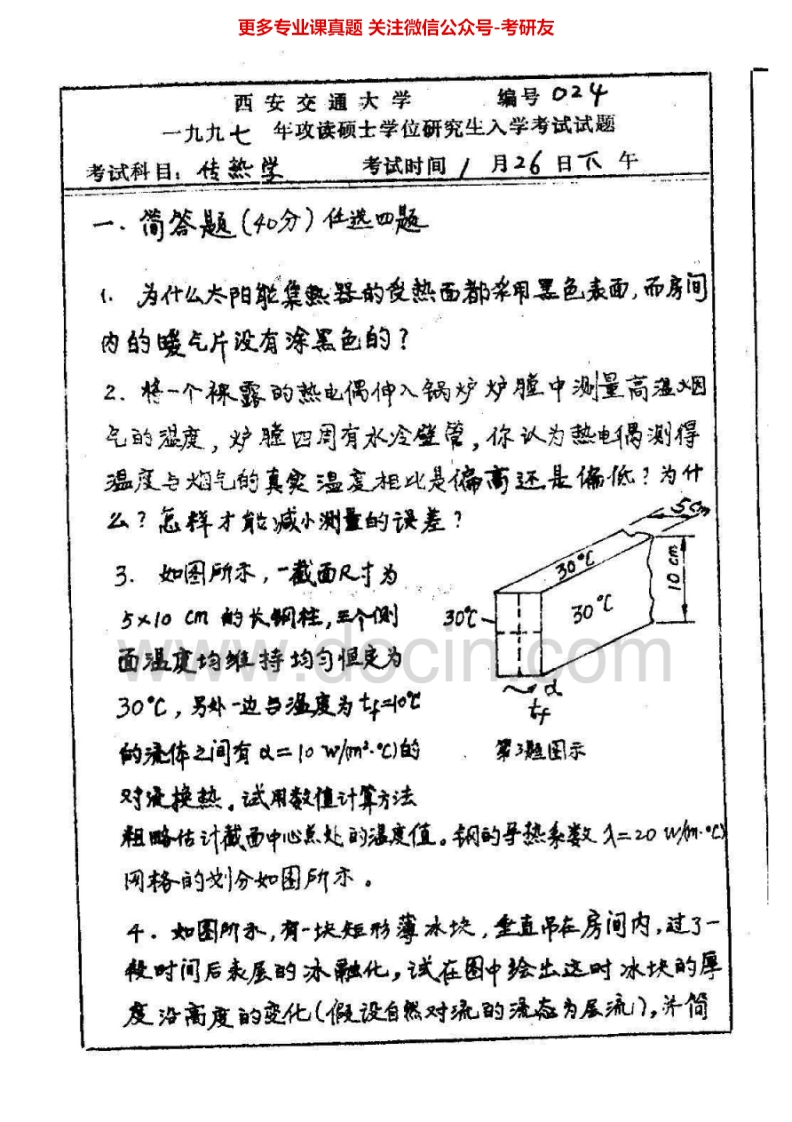 更多专业课真题 关注微信公众号-考研友
西安交通大学 编号024
一九九七 年攻读硕士学位研究生入学考试试题
考试科目：传热学 考试时间 1 月26日下午
一．简答题（40分）任选四题
1. 为什么太阳能集热器的受热面都采用黑色表面，而房间
内的暖气片没有涂黑色的？
2. 将一个裸露的热电偶伸入锅炉炉膛中测量高温烟
气的温度，炉膛四周有水冷壁管，你认为热电偶测得
温度与烟气的真实温度相比是偏高还是偏低？为什
么？怎样才能减小测量的误差？
5cm
30℃
10 cm
3. 如图所示，一截面尺寸为
5×10 cm 的长钢柱，三个侧
30℃
30℃
面温度均维持均匀恒定为
www.docin.com
α
30℃，另外一边与温度为 tf=10℃
tf
的流体之间有 α=10 W/(m²·℃)的
第3题图示
对流换热。试用数值计算方法
粗略估计截面中心点处的温度值。钢的导热系数 λ=20 W/(m·℃)
网格的划分如图所示。
4. 如图所示，有一块矩形薄冰块，垂直吊在房间内，过了一
段时间后表层的冰融化，试在图中绘出这时冰块的厚
度沿高度的变化（假设自然对流的流态为层流），并简